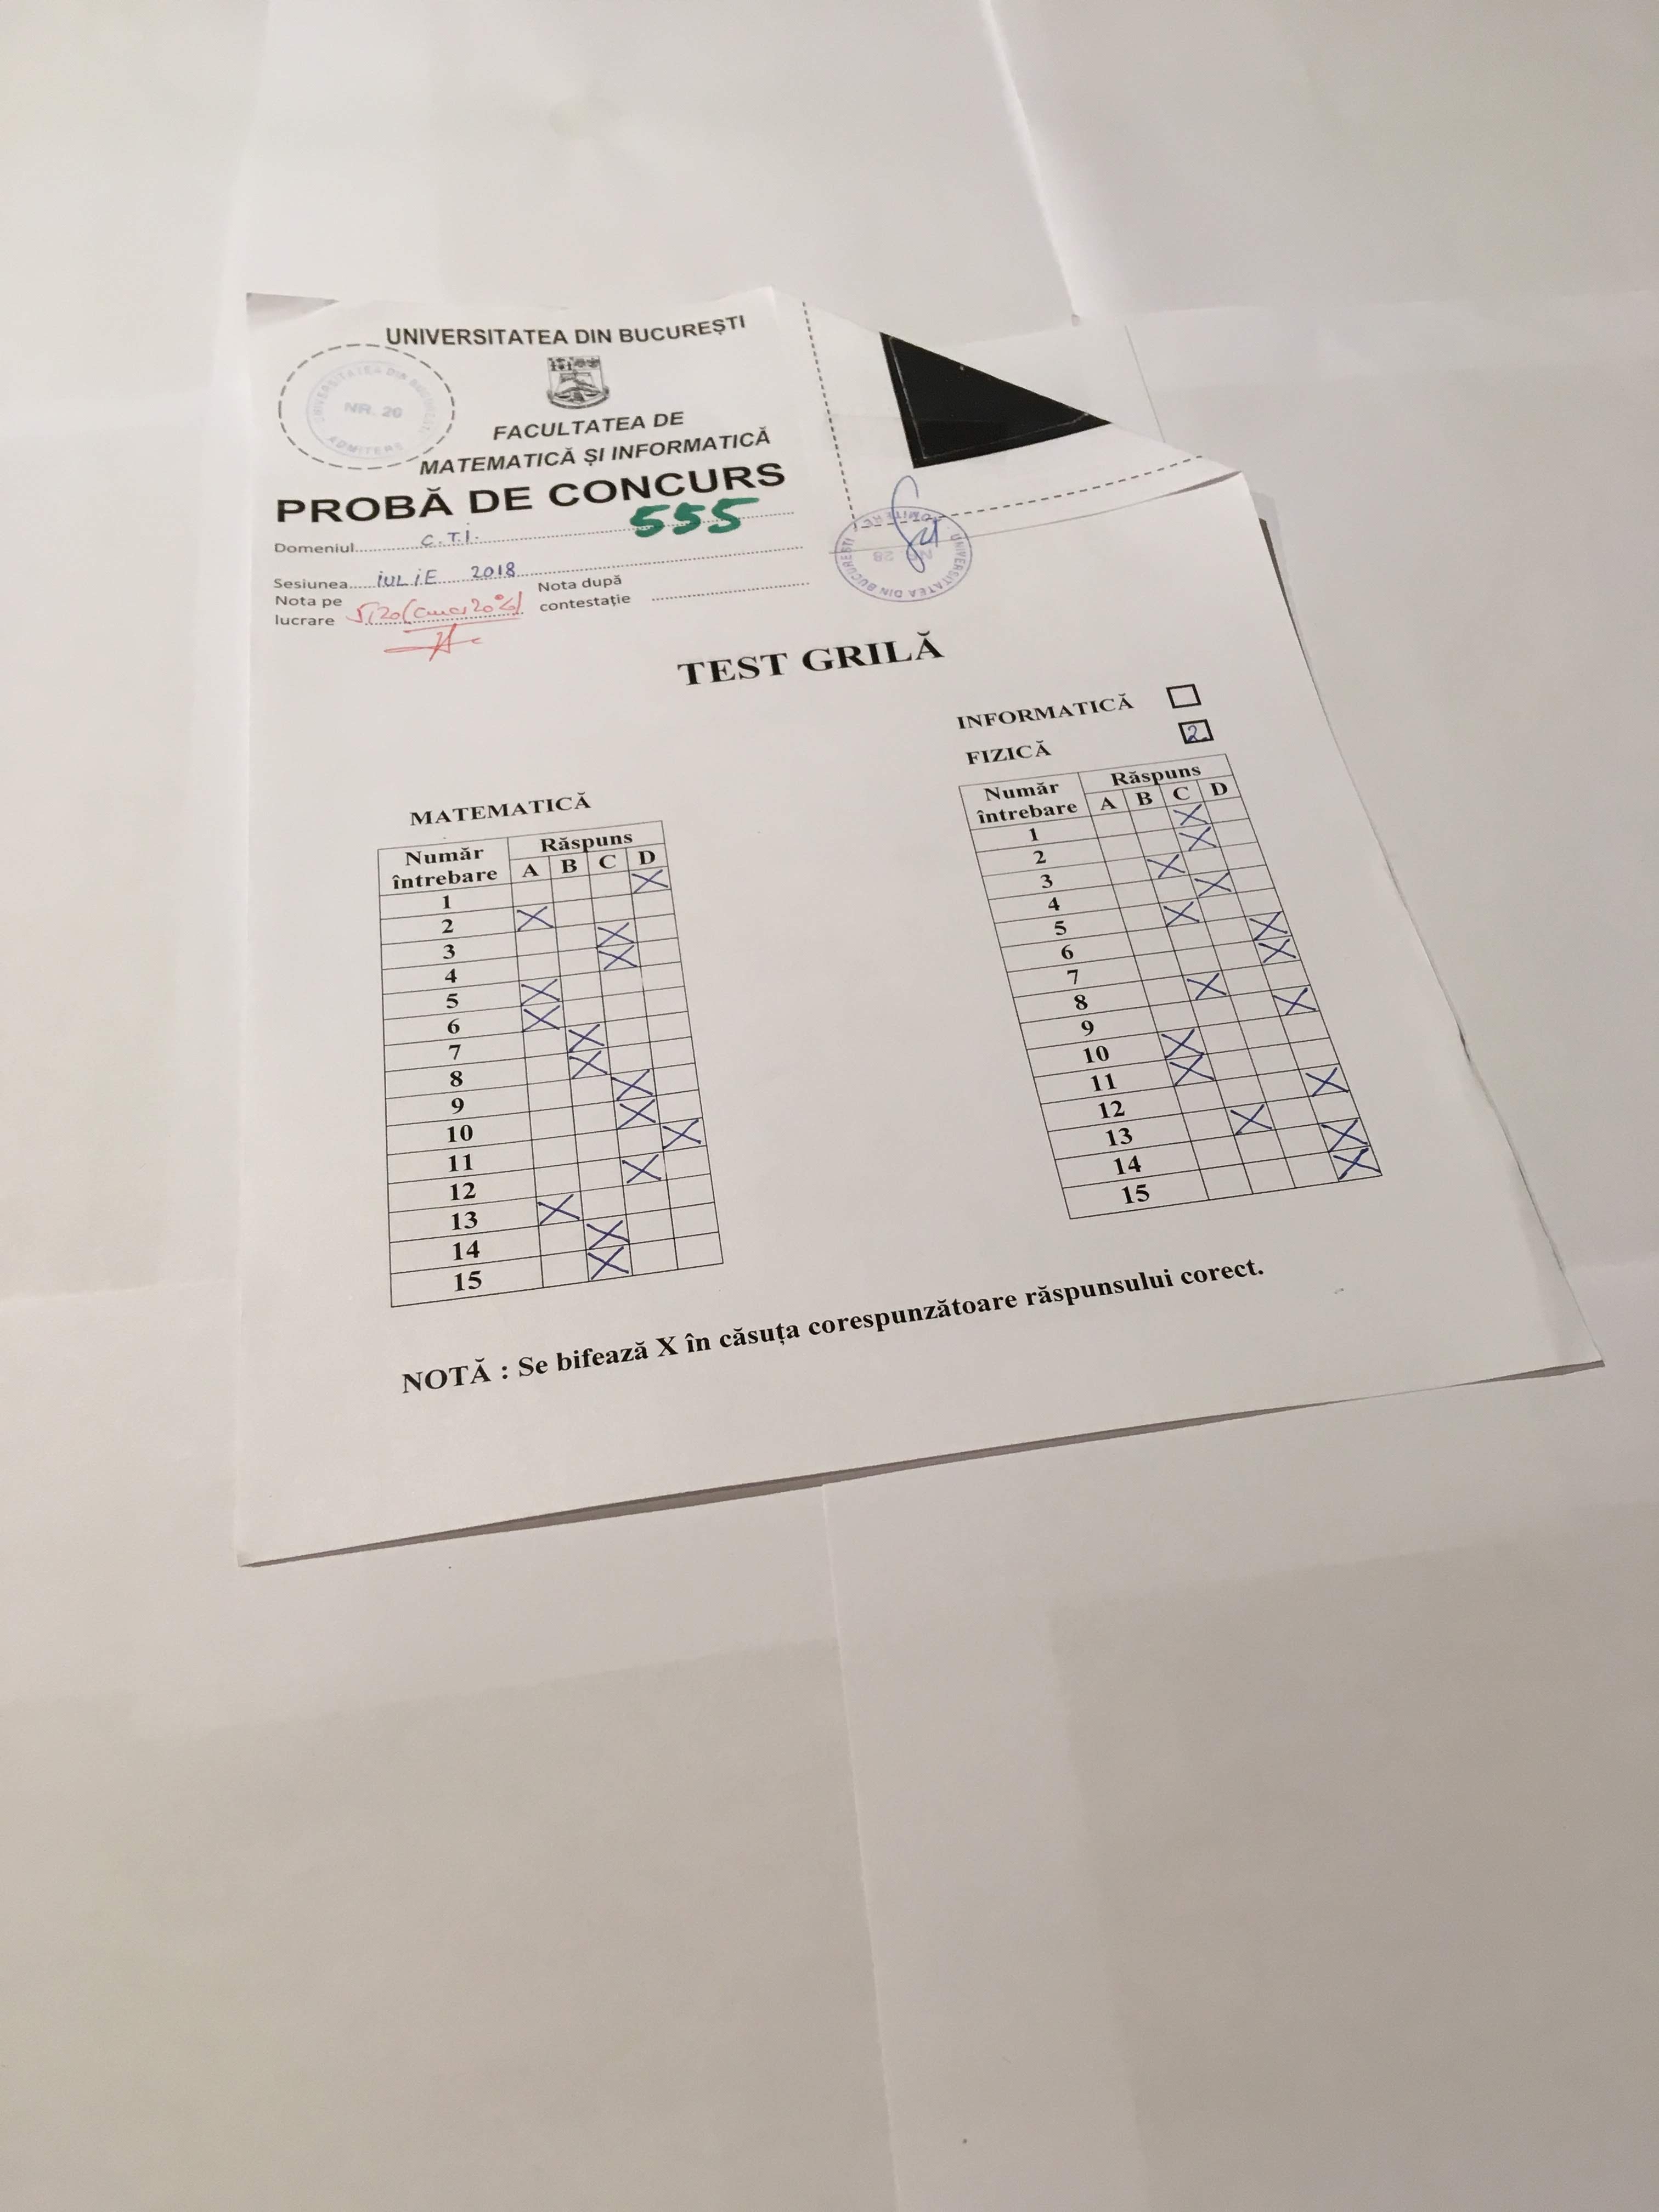 UNIVERSITATEA DIN BUCUREȘTI
UNIVERSITATEA DIN BUCUREȘTI
NR. 26
ADMITERE
FACULTATEA DE
MATEMATICĂ ȘI INFORMATICĂ
PROBĂ DE CONCURS
555
Domeniul C.T.I.
Sesiunea IULIE 2018
Nota pe lucrare 5,20 (cinci 20%)
Nota după contestație
UNIVERSITATEA DIN BUCUREȘTI
ADMITERE
NR 28
TEST GRILĂ
INFORMATICĂ
FIZICĂ 2
MATEMATICĂ
Număr întrebare Răspuns
A B C D
1 X
2 X
3 X
4 X
5 X
6 X
7 X
8 X
9 X
10 X
11 X
12 X
13 X
14 X
15 X
Număr întrebare Răspuns
A B C D
1 X
2 X
3 X
4 X
5 X
6 X
7 X
8 X
9 X
10 X
11 X
12 X
13 X
14 X
15 X
NOTĂ : Se bifează X în căsuța corespunzătoare răspunsului corect.